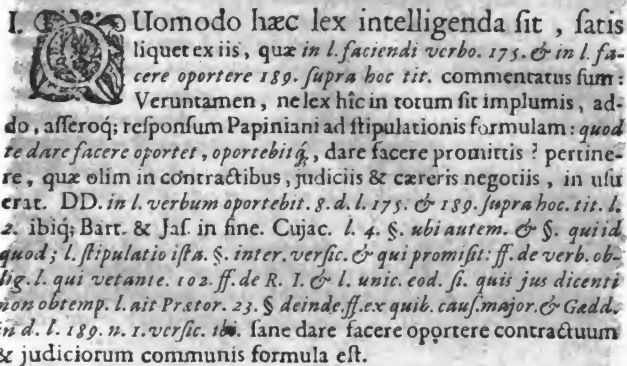 I. QUomodo hæc lex intelligenda sit, satis
liquet ex iis, quæ in l. faciendi verbo. 175. & in l. fa-
cere oportere 189. supra hoc tit. commentatus sum:
Veruntamen, ne lex hîc in totum sit implumis, ad-
do, asseroq; responsum Papiniani ad stipulationis formulam: quod
te dare facere oportet, oportebitq́, dare facere promittis? pertine-
re, quæ olim in contractibus, judiciis & cæreris negotiis, in usu
erat. DD. in l. verbum oportebit. 8. d. l. 175. & 189. supra hoc. tit. l.
2. ibiq; Bart. & Jas. in fine. Cujac. l. 4. §. ubi autem. & §. qui id
quod; l. stipulatio ista. §. inter. versic. & qui promisit: ff. de verb. ob-
lig. l. qui vetante. 102. ff. de R. I. & l. unic. eod. si. quis jus dicenti
non obtemp. l. ait Prætor. 23. § deinde ff. ex quib. caus. major. & Gædd.
in d. l. 189. n. 1. versic. sane dare facere oportere contractuum
& judiciorum communis formula est.